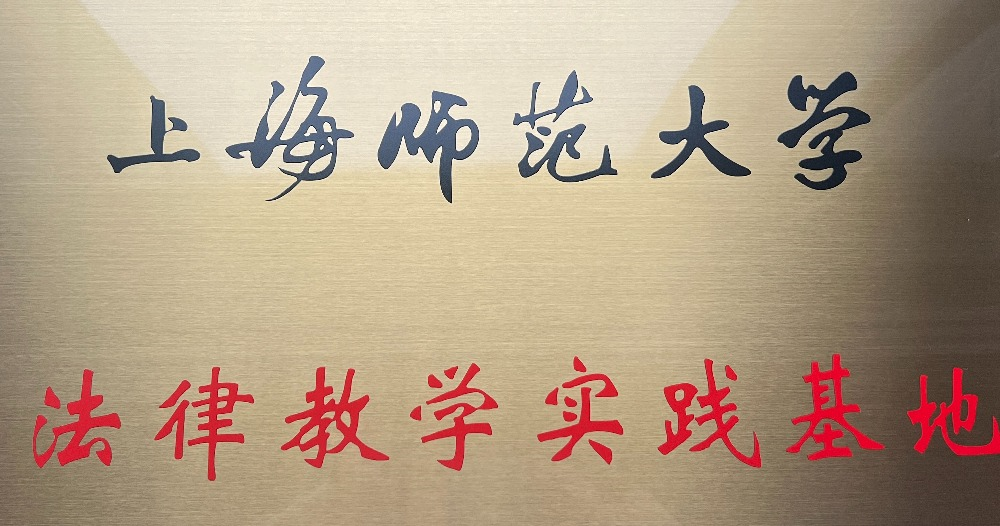 上海师范大学
法律教学实践基地